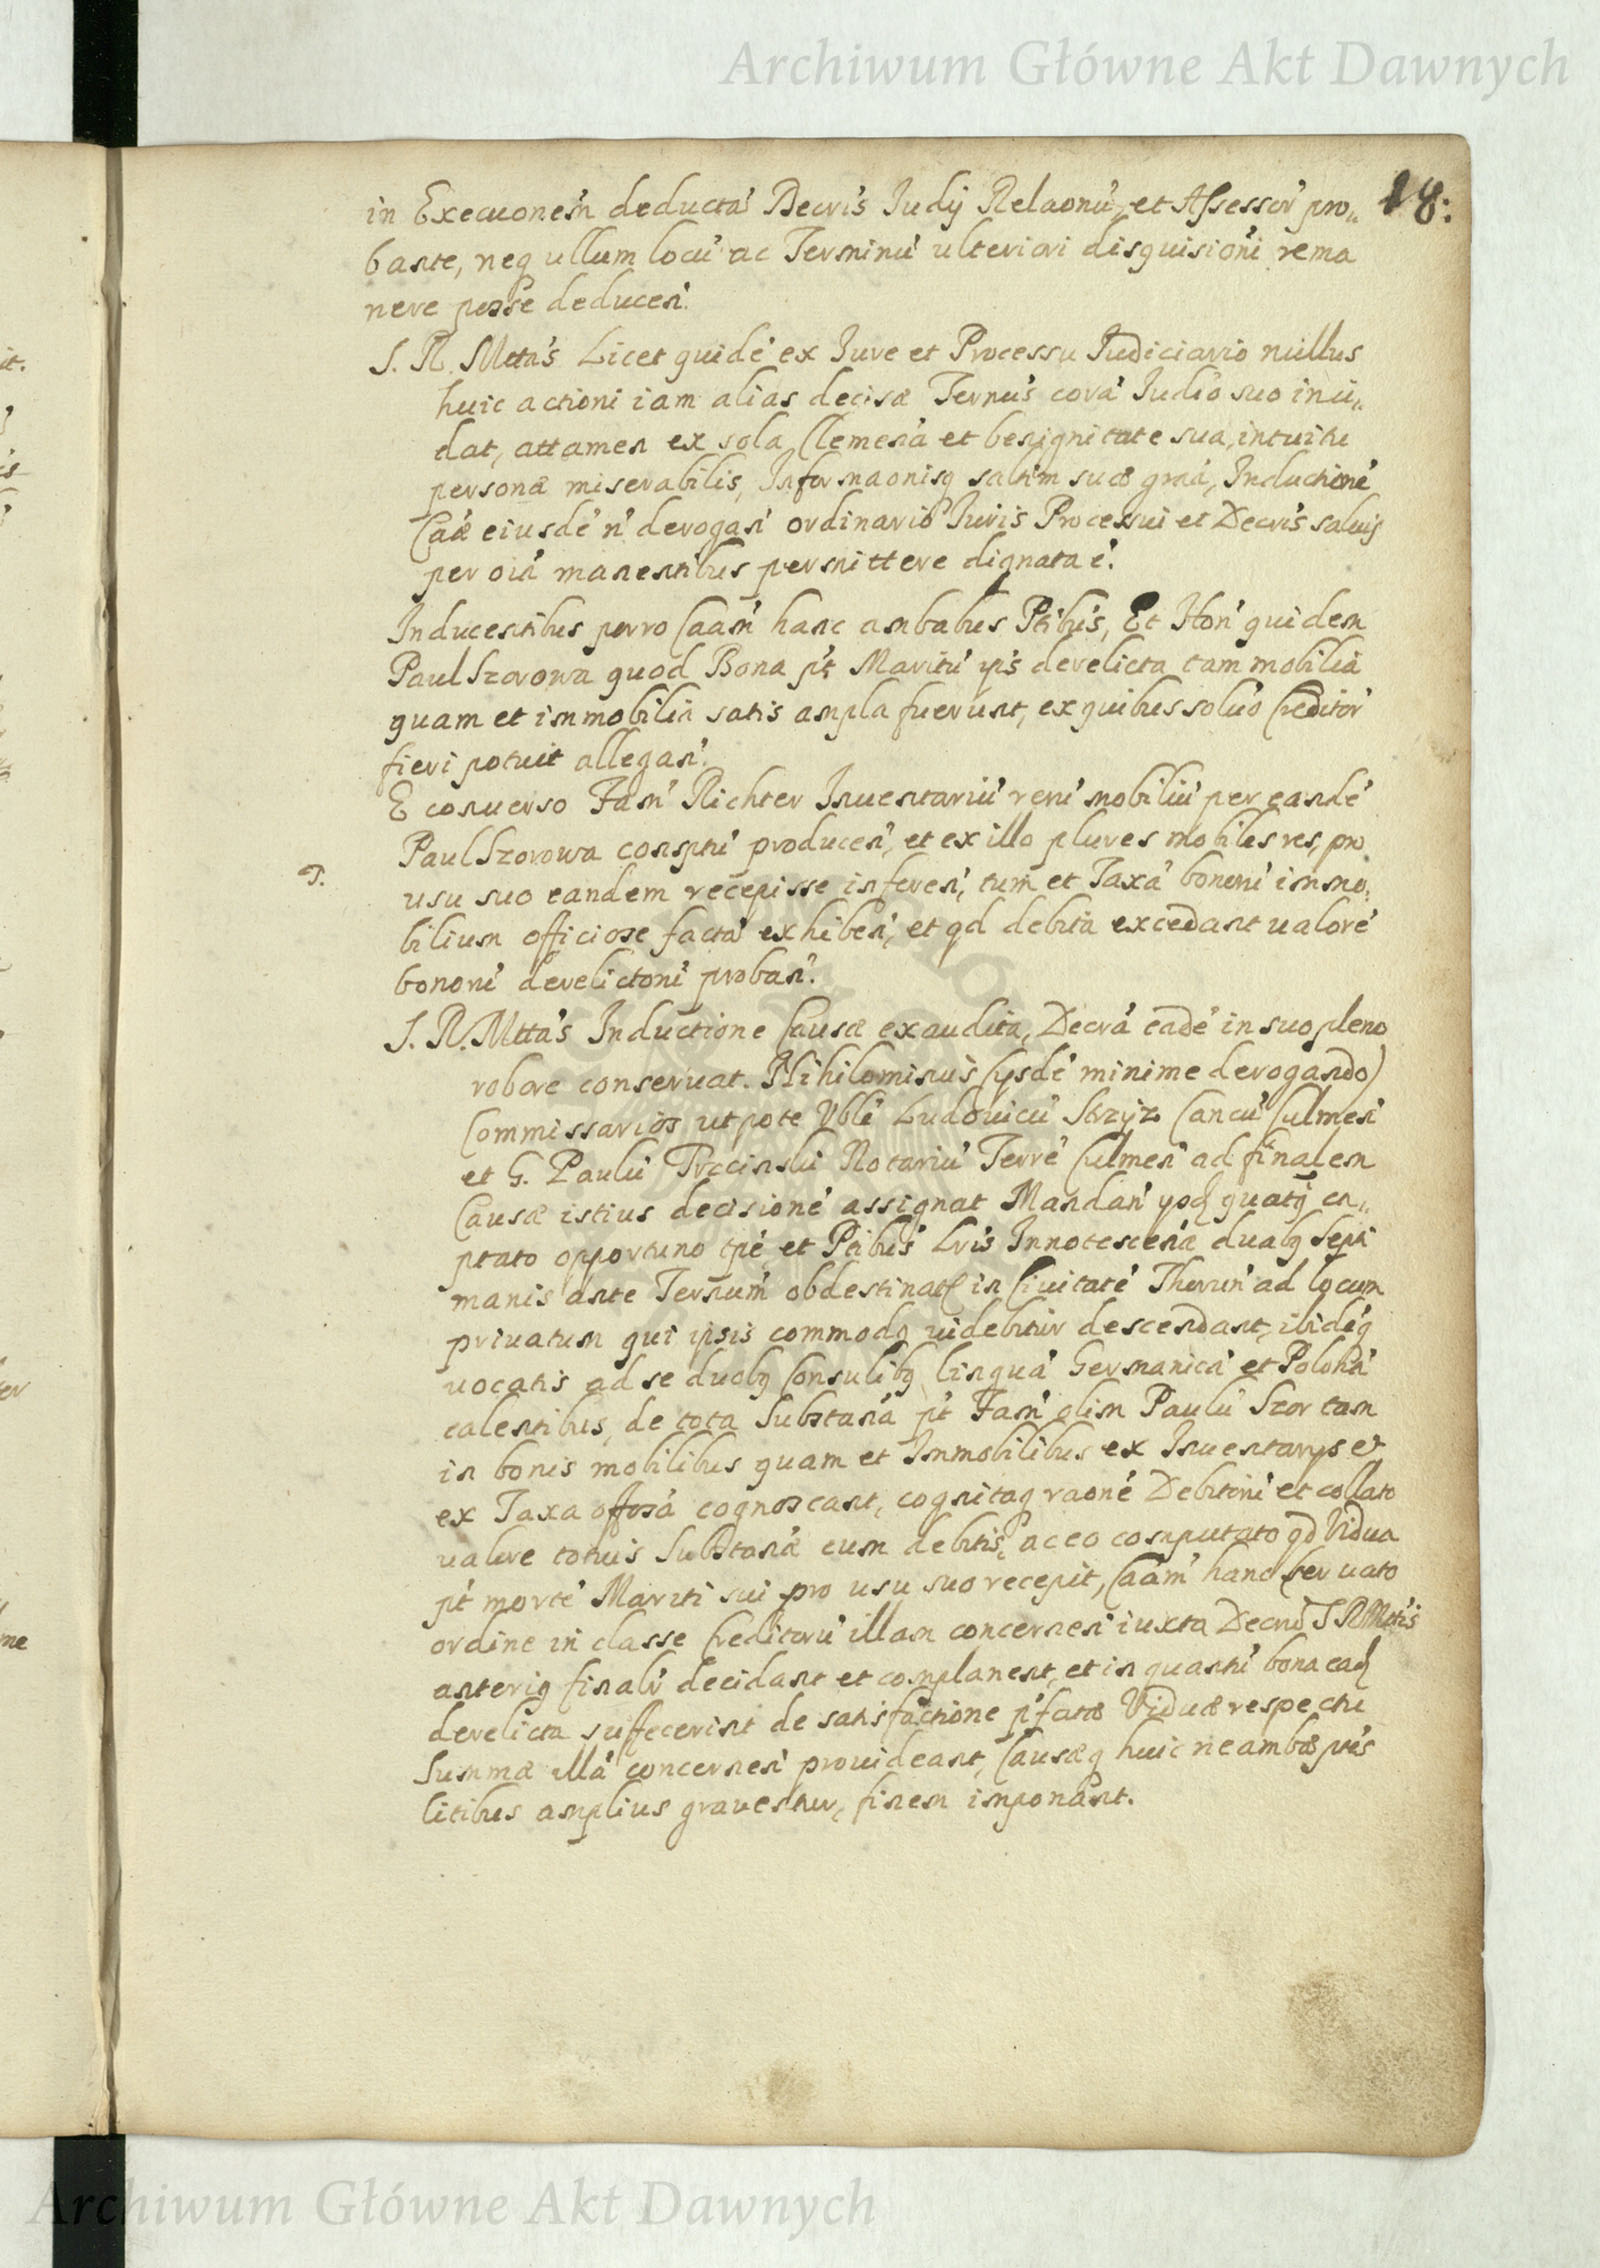 Archiwum Główne Akt Dawnych
18:
in Execuonem̃ deductá Decris̃ Iudij Relaonú, et Assessor̃ pro„
bante, neq ullum locú ac Terminú ulteriori disquisitioni rema
nere posse deducen̄.
S. R. Mttas̃ Licet quidé ex Iure et Processu Iudiciario nullus
huic actioni iam alias decisæ Ternus̃ corá Iudio suo inci„
dat, attamen ex sola Clemená et benignitate sua, intuitu
personæ miserabilis, Informaonisq saltim suæ graá, Inductioné
Caæ̃ eiusdé ñ derogan̄ ordinario Iuris Processui et Decris̃ saluis
per oiá manentibus permittere dignata é.
Inducentibus porro Caam̃ hanc ambabus Ptibus̃, Et Hon̄ quidem
Paul Szorowa quod Bona pt̃ Maritú ips̃ derelicta tam mobilia
quam et immobilia satis ampla fuerunt, ex quibus soluo Creditor̃
fieri potuit allegan̄.
E conuerso Fam̃ Richter Inuentariú rerú mobiliú per eandé
Paul Szorowa conspti produceń, et ex illo plures mobiles res, pro
usu suo eandem recepisse inferen̄, tum et Taxá bonorú immo„
bilium officiose factá exhiben̄, et qd debita excedant ualoré
bonorú derelictorú proban̄.
S. R. Mttas̃ Inductione Causæ exaudita, Decrá eadé in suo pleno
robore conseruat. Nihilominus (ijsdé minime derogando)
Commissarios utpote Vblé Ludouicú Strzyz Cancú Culmen̄
et G. Paulú Trzcinski Notariú Terré Culmen̄ ad finalem
Causæ istius decisioné assignat Mandan̄ ipsis quatq ca„
ptato opportuno tpé, et Ptibus̃ Lris̃ Innotescená duabq Septi
manis ante Ternum̃ obdestinatis in Ciuitaté Thorun̄ ad locum
priuatum qui ipsis commodq uidebitur descendant, ibidéq
uocatis ad se duobq Consulibq linguá Germanicá et Poloná
calentibus, de tota Substaná pt̃ Fam̃ olim Paulú Szor tam
in bonis mobilibus quam et Immobilibus ex Inuentarijs et
ex Taxa offosá cognoscant, cognitaq raoné Debitorú et collato
ualore totius Substanæ cum debitis, ac eo computato qd Vidua
pt̃ morté Mariti sui pro usu suo recepit, Caam̃ hanc seruato
ordine in classe Creditorú illam concernen̄ iuxta Decrú S R Mttis̃
anteriq finalr̃ decidant et complanent, et in quantú bona eaq
derelicta suffecerint de satisfactione p̃fatæ Viduæ respectu
Summæ illá concernen̄ prouideant, Causæq huic ne ambæ ptes̃
litibus amplius grauentur, finem imponant.
Archiwum Główne Akt Dawnych